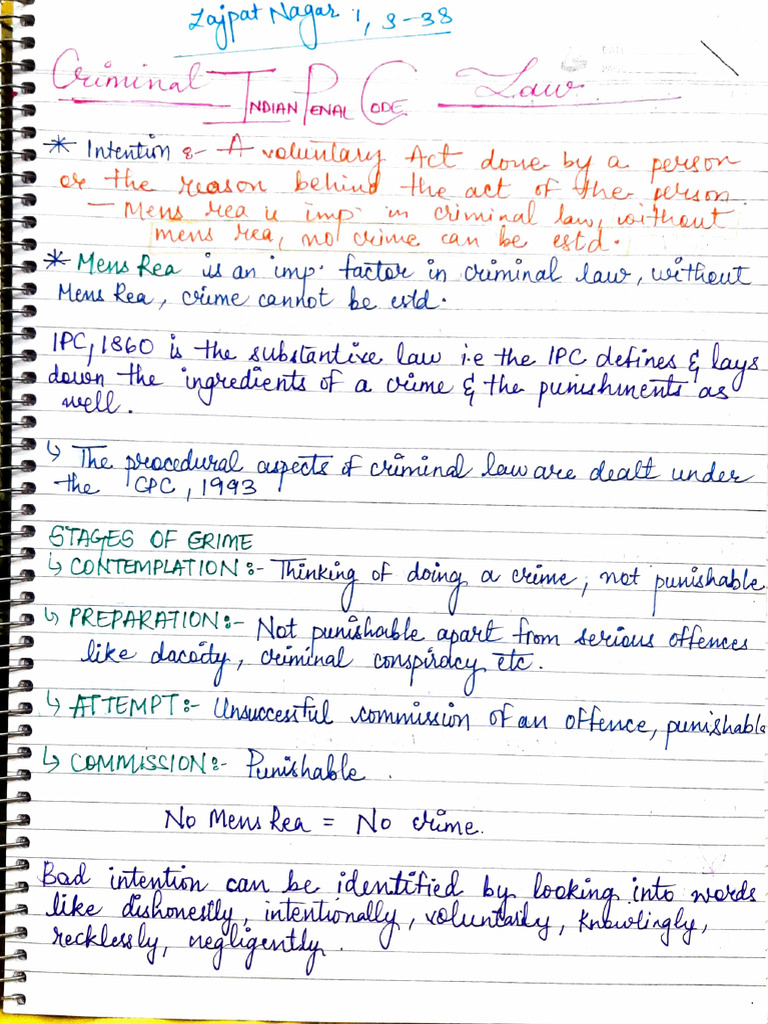 Lajpat Nagar 1, 3-38
Criminal INDIAN PENAL CODE Law
* Intention :- A voluntary Act done by a person
or the reason behind the act of the person
- Mens rea is imp in criminal law, without
mens rea, no crime can be estd.
* Mens Rea is an imp. factor in criminal law, without
Mens Rea, crime cannot be estd.
IPC, 1860 is the substantive law i.e the IPC defines & lays
down the ingredients of a crime & the punishments as
well.
↳ The procedural aspects of criminal law are dealt under
the CPC, 1993
STAGES OF CRIME
↳ CONTEMPLATION :- Thinking of doing a crime, not punishable
↳ PREPARATION :- Not punishable apart from serious offences
like dacoity, criminal conspiracy etc.
↳ ATTEMPT :- Unsuccessful commission of an offence, punishable
↳ COMMISSION :- Punishable.
No Mens Rea = No crime.
Bad intention can be identified by looking into words
like dishonestly, intentionally, voluntarily, knowlingly,
recklessly, negligently.